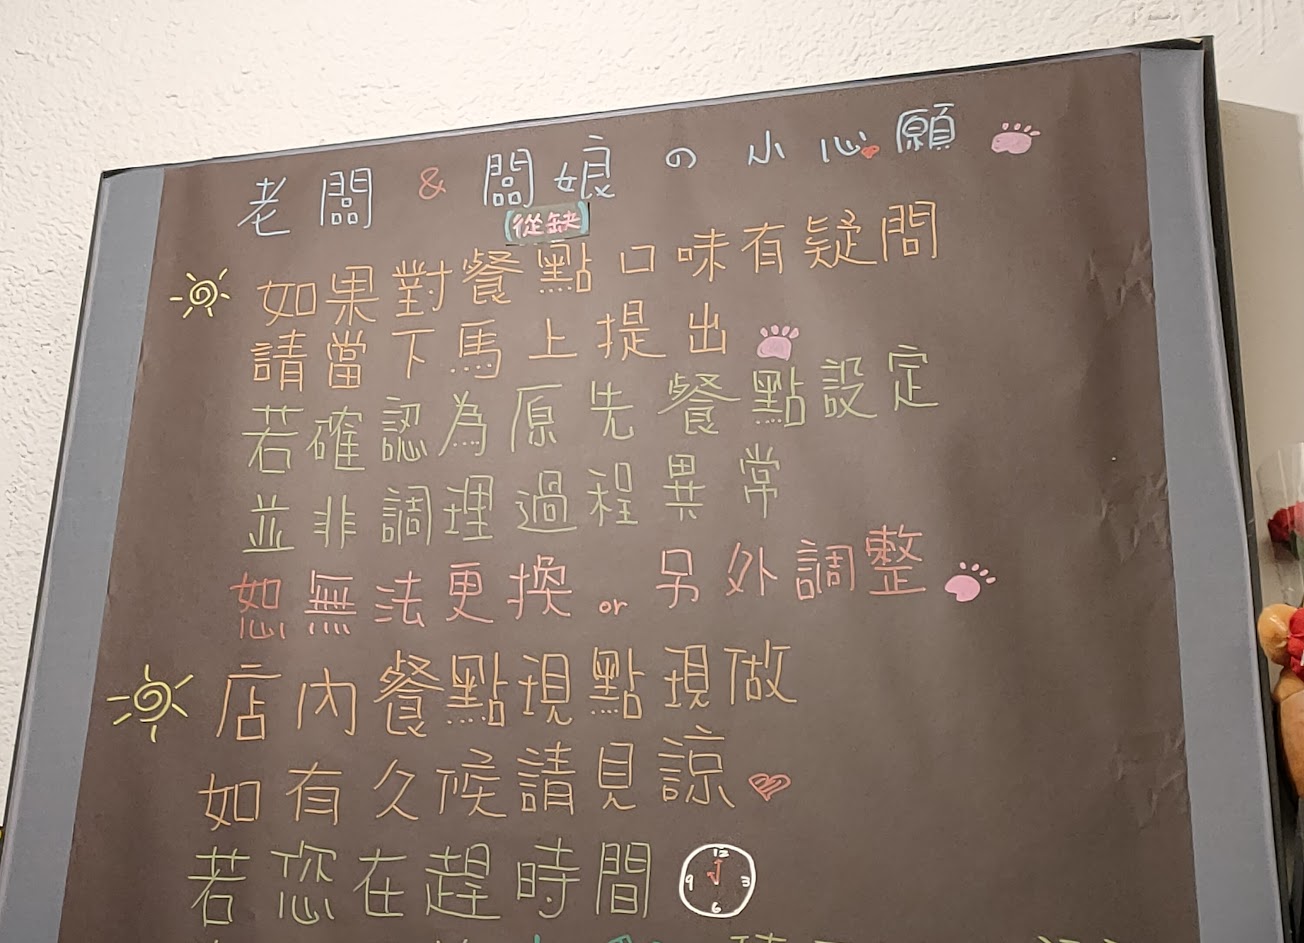 老闆 & 闆娘の小心願
(從缺)
如果對餐點口味有疑問
請當下馬上提出
若確認為原先餐點設定
並非調理過程異常
恕無法更換 or 另外調整
店內餐點現點現做
如有久候請見諒
若您在趕時間
12
9 3
6